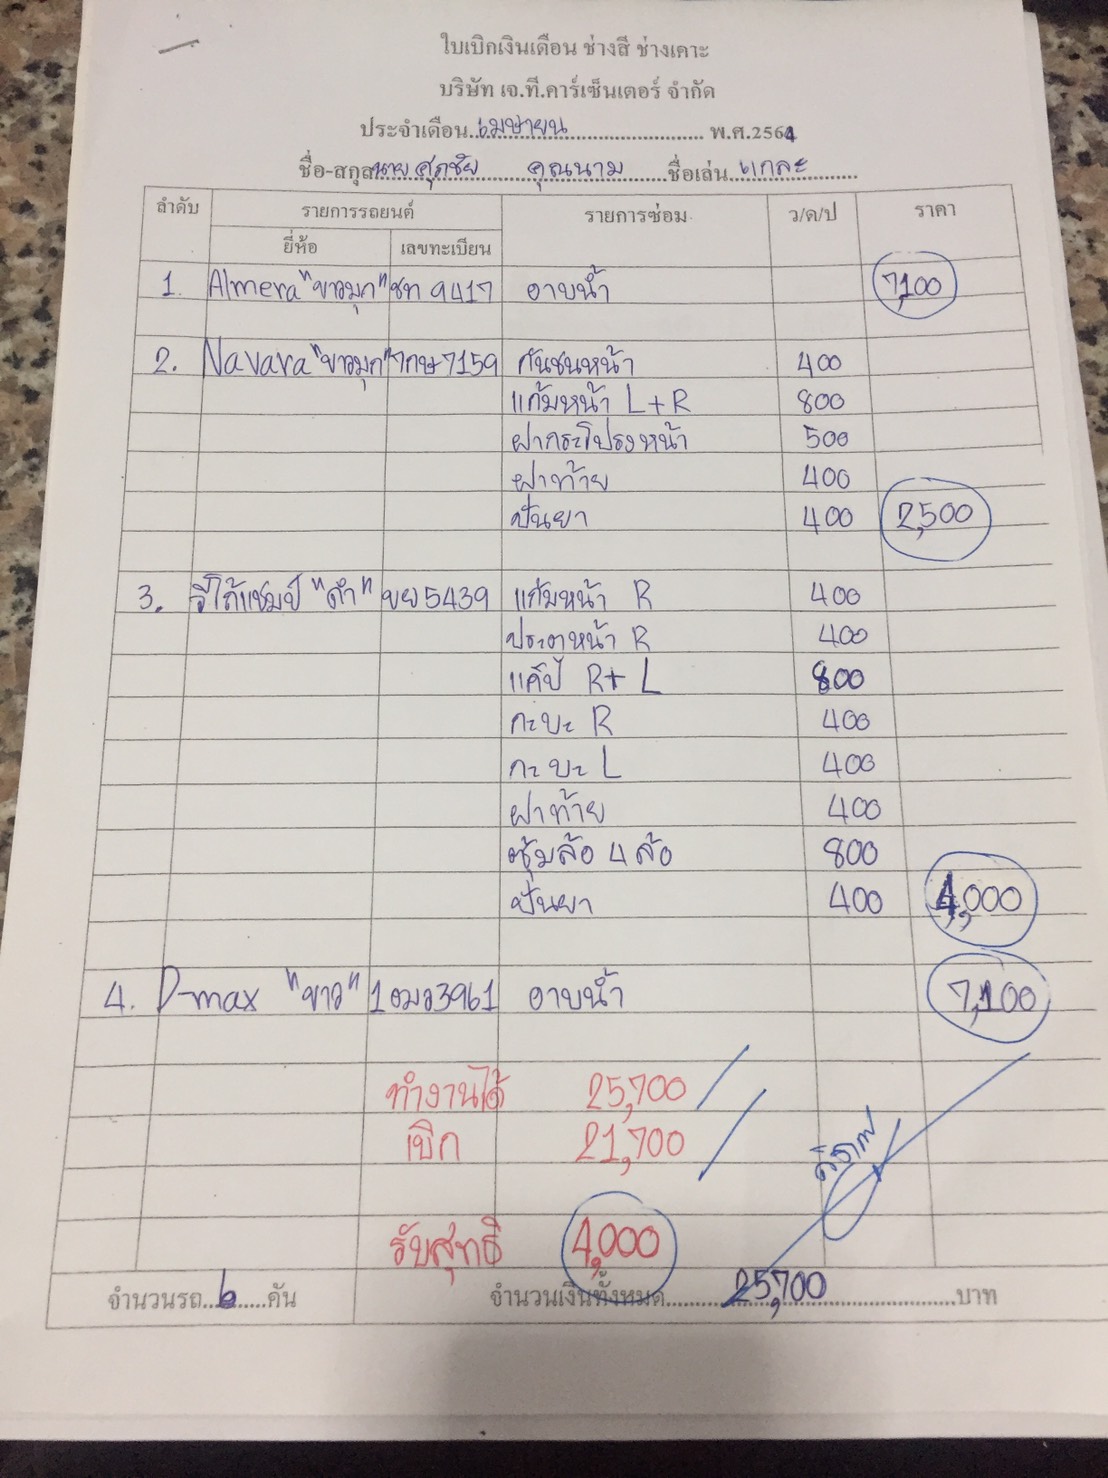 ใบเบิกเงินเดือน ช่างสี ช่างเคาะ
บริษัท เจ.ที.คาร์เซ็นเตอร์ จำกัด
ประจำเดือน..เมษายน.......................... พ.ศ.2564
ชื่อ-สกุล นาย ศุภชัย คุณนาม ........ชื่อเล่น..แกละ........
ลำดับ รายการรถยนต์ รายการซ่อม ว/ด/ป ราคา
ยี่ห้อ เลขทะเบียน
1. Almera "ขาวมุก" ชท 9417 อาบน้ำ 7,100
2. Navara "ขาวมุก" 7กษ7159 กันชนหน้า 400
แก้มหน้า L+R 800
ฝากระโปรงหน้า 500
ฝาท้าย 400
ปั่นยา 400 2,500
3. รีโว้แชมป์ "ดำ" ขย5439 แก้มหน้า R 400
ประตูหน้า R 400
แค็ป R+L 800
กะบะ R 400
กะบะ L 400
ฝาท้าย 400
ซุ้มล้อ 4 ล้อ 800
ปั่นยา 400 4,000
4. D-max "ขาว" 1ฒว3961 อาบน้ำ 7,100
ทำงานได้ 25,700
เบิก 21,700
รับสุทธิ 4,000
จำนวนรถ...6......คัน จำนวนเงินทั้งหมด..........25,700....................บาท